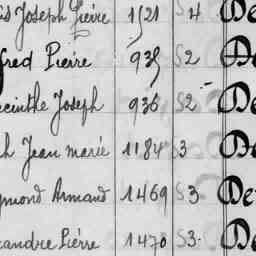 is Joseph Pierre 1521 S4 De
fred Pierre 939 S2 De
acinthe Joseph 936 S2 De
h Jean marie 1184 S3 De
ymond Armand 1469 S3 De
xandre Pierre 1470 S3. De